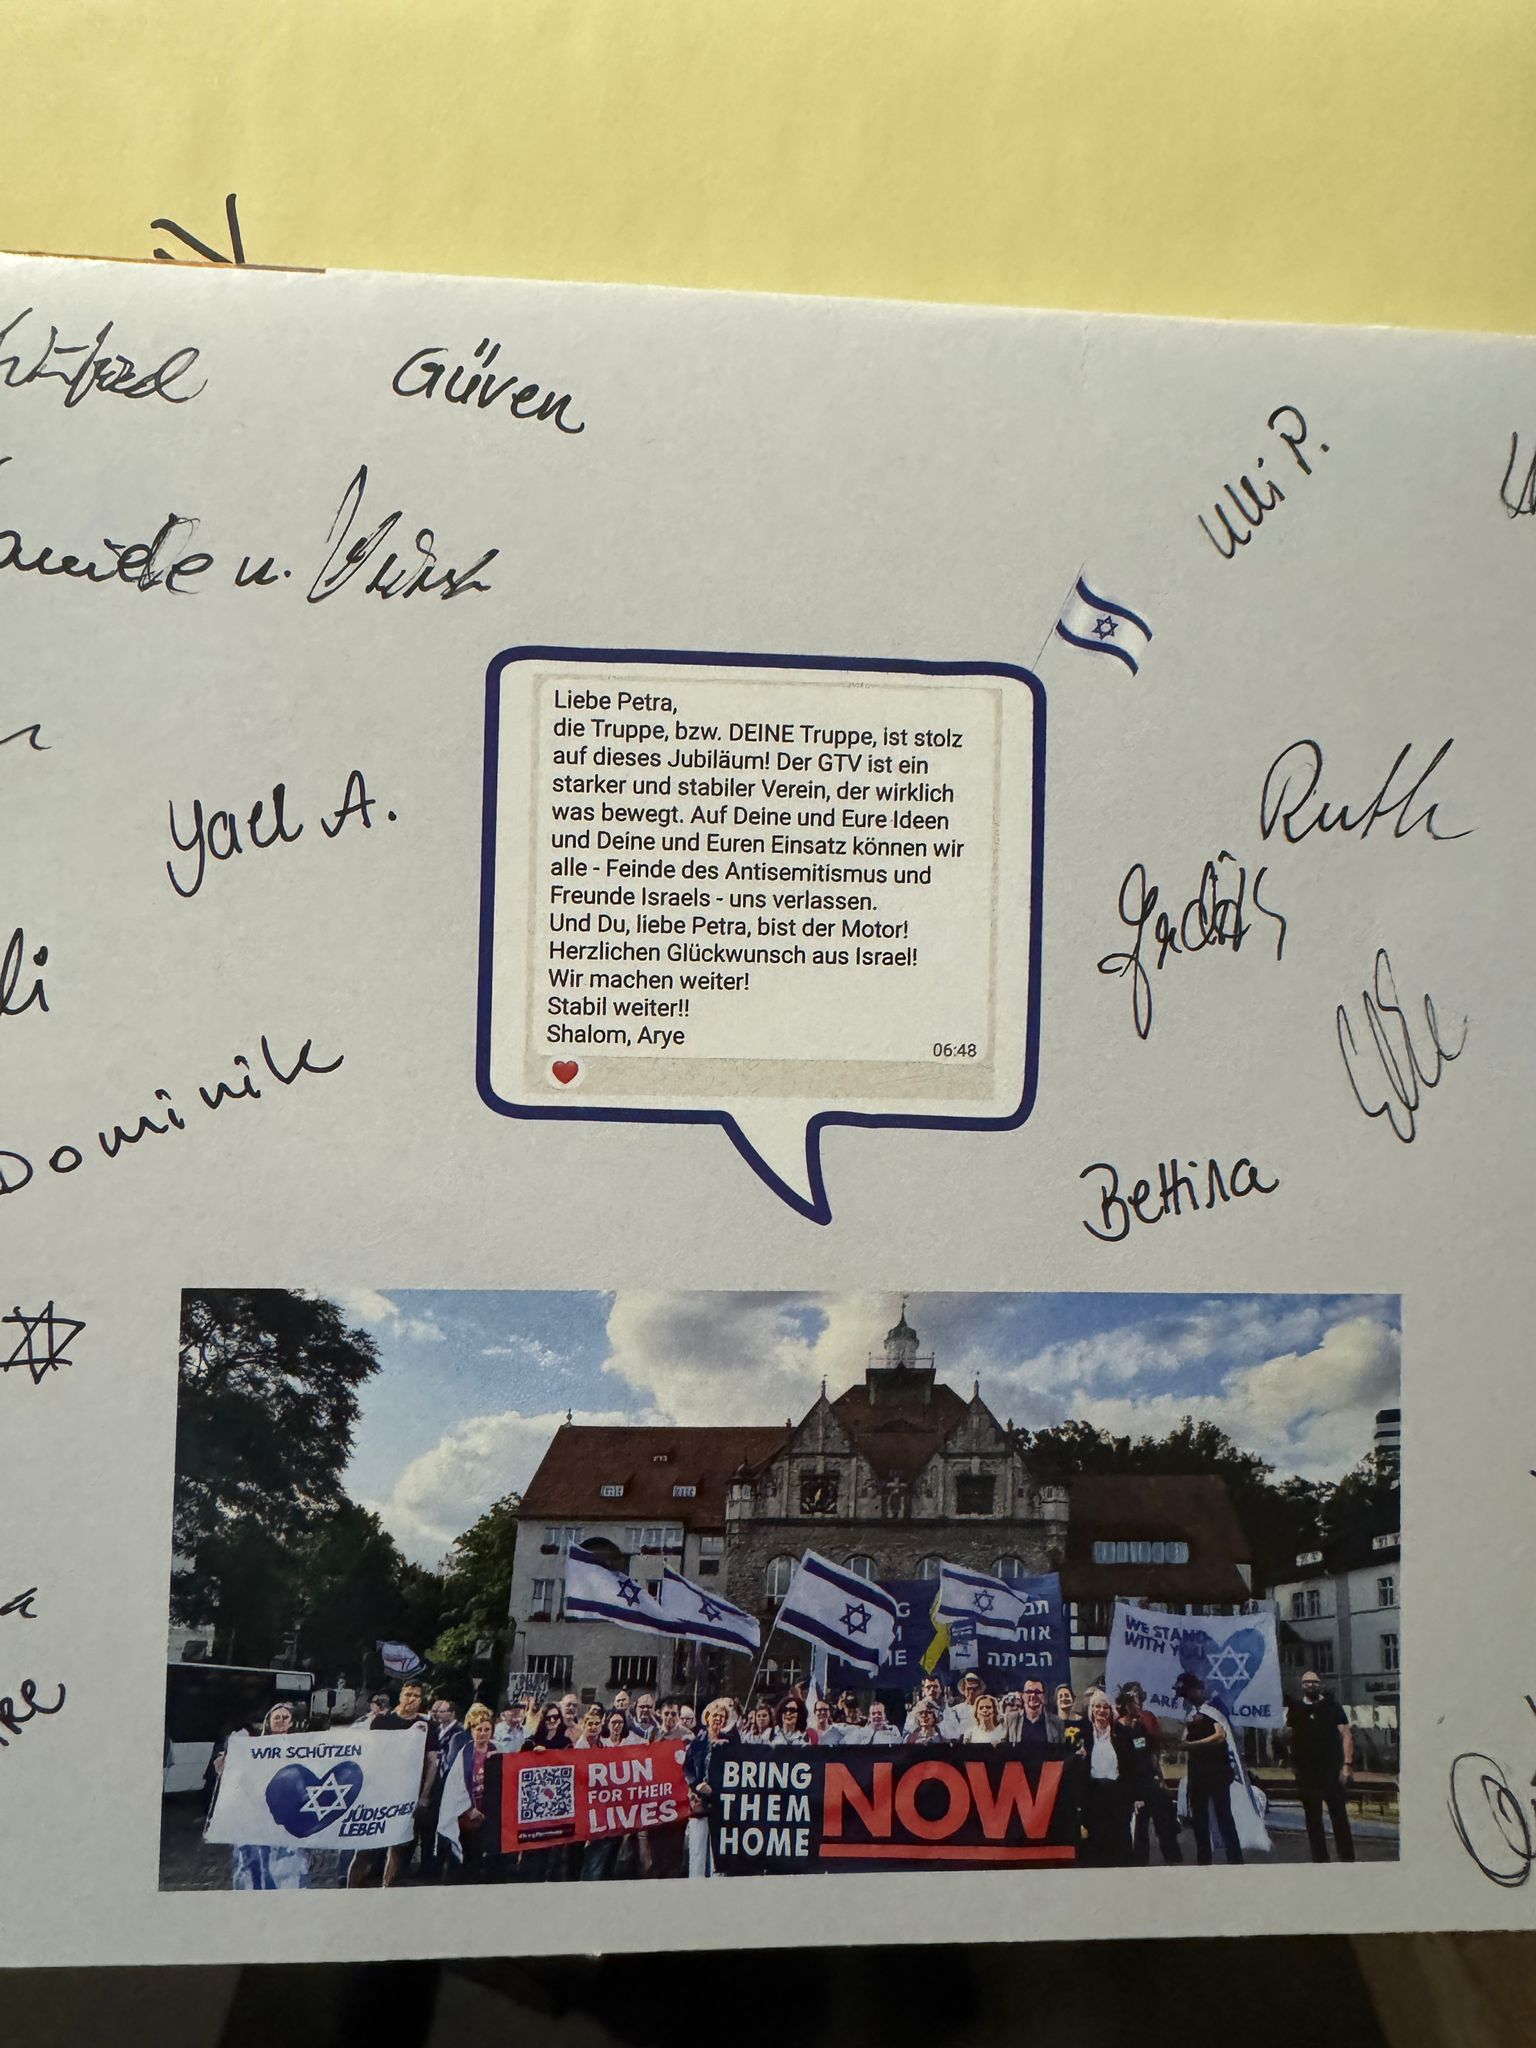 Güven
Ulli P.
u.
Liebe Petra,
die Truppe, bzw. DEINE Truppe, ist stolz
auf dieses Jubiläum! Der GTV ist ein
starker und stabiler Verein, der wirklich
was bewegt. Auf Deine und Eure Ideen
und Deine und Euren Einsatz können wir
alle - Feinde des Antisemitismus und
Freunde Israels - uns verlassen.
Und Du, liebe Petra, bist der Motor!
Herzlichen Glückwunsch aus Israel!
Wir machen weiter!
Stabil weiter!!
Shalom, Arye
06:48
Yael A.
Ruth
Dominik
Bettina
אות
הביתה
WE STAND
WITH YOU
ARE
ALONE
WIR SCHÜTZEN
JÜDISCHES
LEBEN
RUN
FOR THEIR
LIVES
BRING
THEM
HOME
NOW